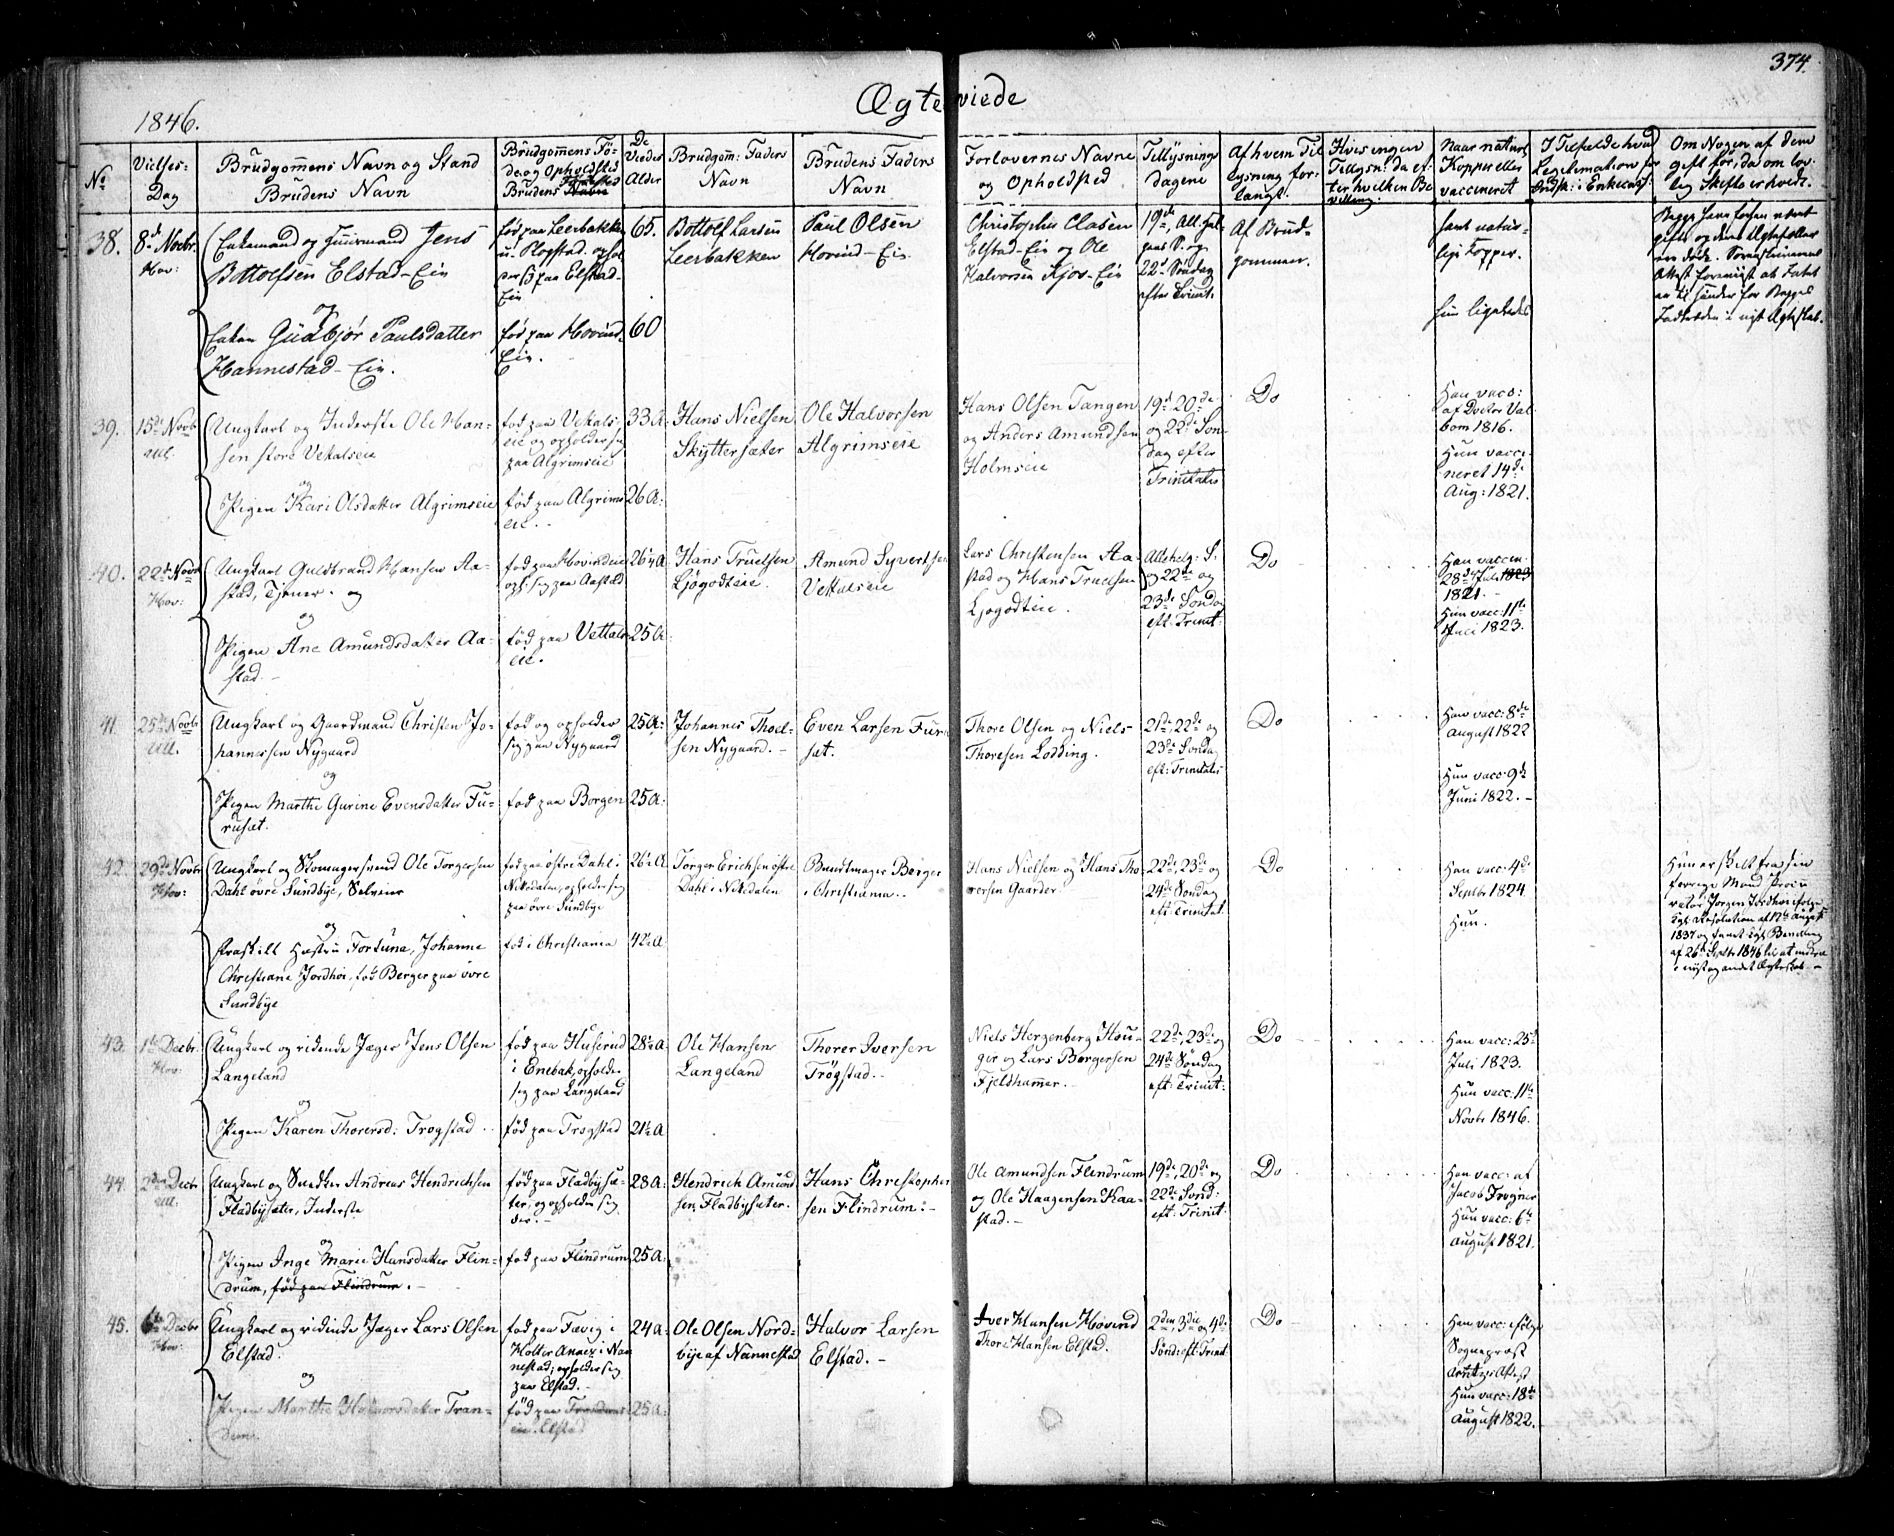 374.
Ægteviede
1846.
No
Vielses-
Dag
Brudgommens Navn og Stand
Brudens Navn
Brudgommens Fö-
de og Opholdsted
Brudens Fødested
De
Viedes
Alder
Brudgom: Faders
Navn
Brudens Faders
Navn
Forlovernes Navne
og Opholdsted
Tillysnings
dagene
Af hvem Til
lysning for-
langt.
Hvis ingen
Tillysn: da ef-
ter hvilken Be
villing.
Naar naturl:
Kopper eller
vaccineret
I Tilfælde hvad
Legitimation for
Indsk: i Enkecassen
Om Nogen af dem
gift før, da om lov-
lig Skifte erholdt.
38.
8de Novbr.
Hov:
Enkemand og Huusmand Jens
Bottolfsen Elstad-Eie
og
Enken Gudbjør Paulsdatter
Hannestad-Eie.
født paa Leerbakken
u. Rogstad. ophol
der sig paa Elstad-
Eie
født paa Hovind-
Eie.
65.
60
Bottolf Larsen
Leerbakken
Paul Olsen
Hovind-Eie.
Christopher Clasen
Elstad-Eie og Ole
Halvorsen Kjos-Eie
19de, All. Hel-
gens S. og
22d Søndag
efter Trinit:
Af Brud-
gommen.
havt natur-
lige Kopper.
hun ligeledes
Begge have forhen været
gifte og deres Ægtefæller
ere døde.
39.
15de Novb
Ull.
Ungkarl og Inderste Ole Han-
sen store Vekalseie
og
Pigen Kari Olsdatter Algrimseie
fød paa Vekals-
eie og opholder sig
paa Algrimseie
fød paa Algrims
eie.
33 A:
26 A:
Hans Nielsen
Skyttersæter
Ole Halvorsen
Algrimseie
Hans Olsen Tangen
og Anders Amundsen
Holmseie
19de 20de
og 22de Søn
dag efter
Trinitatis
Do
Han vacc:
af Doctor Val
bom 1816.
Hun vacci
neret 14de
Aug: 1821.
40.
22de Novb
Hov:
Ungkarl Guldbrand Hansen Aa-
stad, Tjener. og
og
Pigen Ane Amundsdatter Aa-
stad.
fød paa Hovindeie
oph: sig paa Aastad
fød paa Vettals
eie.
26¼ A
25 A:
Hans Truelsen
Ljøgodteie.
Amund Syvertsen
Vettalseie
Lars Christensen Aa-
stad og Hans Truelsen
Ljøgodteie.
Allehelg: S.
og 22de og
23de Søndag
eft: Trinit:
Do
Han vaccin:
28de Juli 1823
1821.
Hun vacc: 11te
Juli 1823.
41.
25de Novbr
Ull.
Ungkarl og Gaardmand Christen Jo-
hannessen Nygaard
og
Pigen Marthe Gurine Evensdatter Fu-
rusæt.
fød og opholder
sig paa Nygaard
fød paa Borgen
25 A:
25 A:
Johannes Thoel-
sen Nygaard.
Even Larsen Furu
sæt.
Thore Olsen og Niels
Thoresen Lodding.
21de, 22de og
23de Søndag
eft: Trinitatis
Do
Han vacc: 8de
August 1822
Hun vacc: 9de
Juni 1822.
42.
29de Novbr
Hov:
Ungkarl og Skomagersvend Ole Torgersen
Dahl övre Sundbye, Selveier
og
fraskilt Hustru Fortuna, Johanne
Christiane Jordhøi, fød Berger paa övre
Sundbye
fød paa östre Dahl i
Nittedalen, opholder sig
paa övre Sundbye
fød i Christiania
26½ A
42½ A
Torger Erichsen östre
Dahl i Nittedalen
Bundtmager Berger
i Christiania.
Hans Nielsen og Hans Tho-
resen Gaarder.
22de, 23de og
24de Søndag
eft: Trinitat.
Do
Han vacc: 4de
Septbr 1824
Hun.
Hun er skilt fra sin
forrige Mand Procu
rator Jørgen Jordhøi ifølge
Kgl. Resolution af 17de August
1837 og havt Kgl. Bevilling
af 26de Septbr 1846 til at indtræde
i nyt og andet Ægteskab.
43.
1ste Decbr.
Hov:
Ungkarl og ridende Jæger Jens Olsen
Langeland
og
Pigen Karen Thorersd: Trøgstad
fød paa Huserud
i Enebak, opholder
sig paa Langeland
fød paa Trøgstad
28½ A:
21½ A
Ole Hansen
Langeland
Thorer Iversen
Trøgstad.
Niels Herzenberg Hou-
ger og Lars Borgersen
Fjeldhammer.
22de, 23de og
24de Søndag
eft: Trinit:
Do
Han vacc: 25de
Juli 1823.
Hun vacc: 11te
Novbr 1846.
44.
2den Decbr
Ull.
Ungkarl og Snedker Andreas Hendrichsen
Fladbysæter, Inderste
og
Pigen Inge Marie Hansdatter Flin-
drum, fød paa Flindrum.
fød paa Fladbysæ-
ter, og opholder sig
der.
fød paa Flindrum
28 A:
25 A:
Hendrich Amund
sen, Fladbysæter.
Hans Christopher
sen Flindrum:
Ole Amundsen Flindrum
og Ole Haagensen Kaa-
stad.
19de, 20de og
22de Sønd:
eft: Trinit:
Do
Han vacc: af
Jacob Frogner
Hun vacc: 6te
August 1821.
45.
6te Decbr
Hov:
Ungkarl og ridende Jæger Lars Olsen
Elstad.
og
Pigen Marthe Halvorsdatter Tran-
dum.
fød paa Fævig i
Holter Annex i Nan
nestad; opholder sig
paa Elstad.
fød paa Trandums
eie. Elstad
24 A:
25 A:
Ole Olsen Nord-
bye af Nannestad
Halvor Larsen
Elstad.
Iver Hansen Hovind
Thore Hansen Elstad.
2den, 3die og 4de
Sønd: eft: Trinit
Do
Han vacc: ifølge
Sogneprest
Attest
Hun vacc: 18de
August 1822.